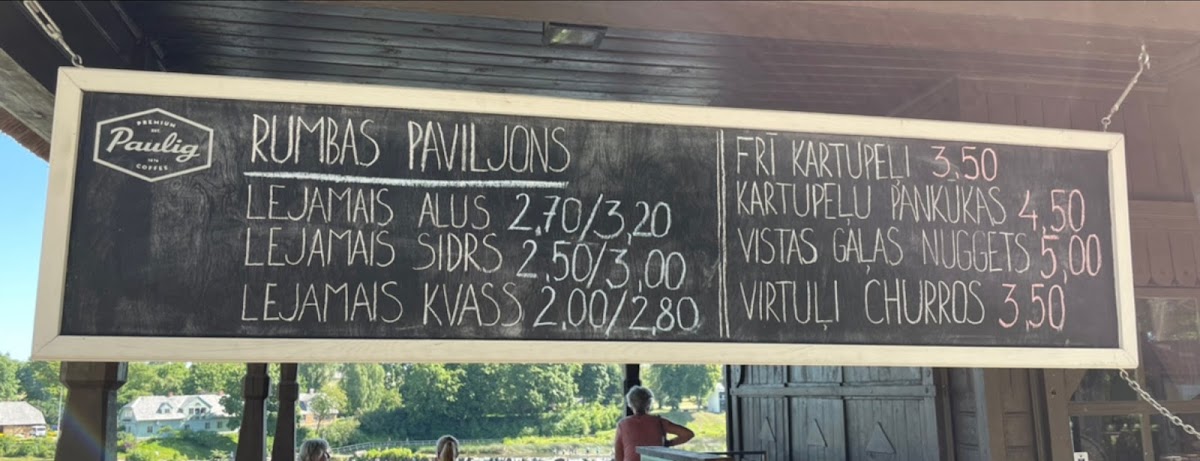 PREMIUM
EST.
Paulig
1876
COFFEE
RUMBAS PAVILJONS
LEJAMAIS ALUS 2,70/3,20
LEJAMAIS SIDRS 2,50/3,00
LEJAMAIS KVASS 2,00/2,80
FRĪ KARTUPEĻI 3,50
KARTUPEĻU PANKŪKAS 4,50
VISTAS GAĻAS NUGGETS 5,00
VIRTUĻI CHURROS 3,50